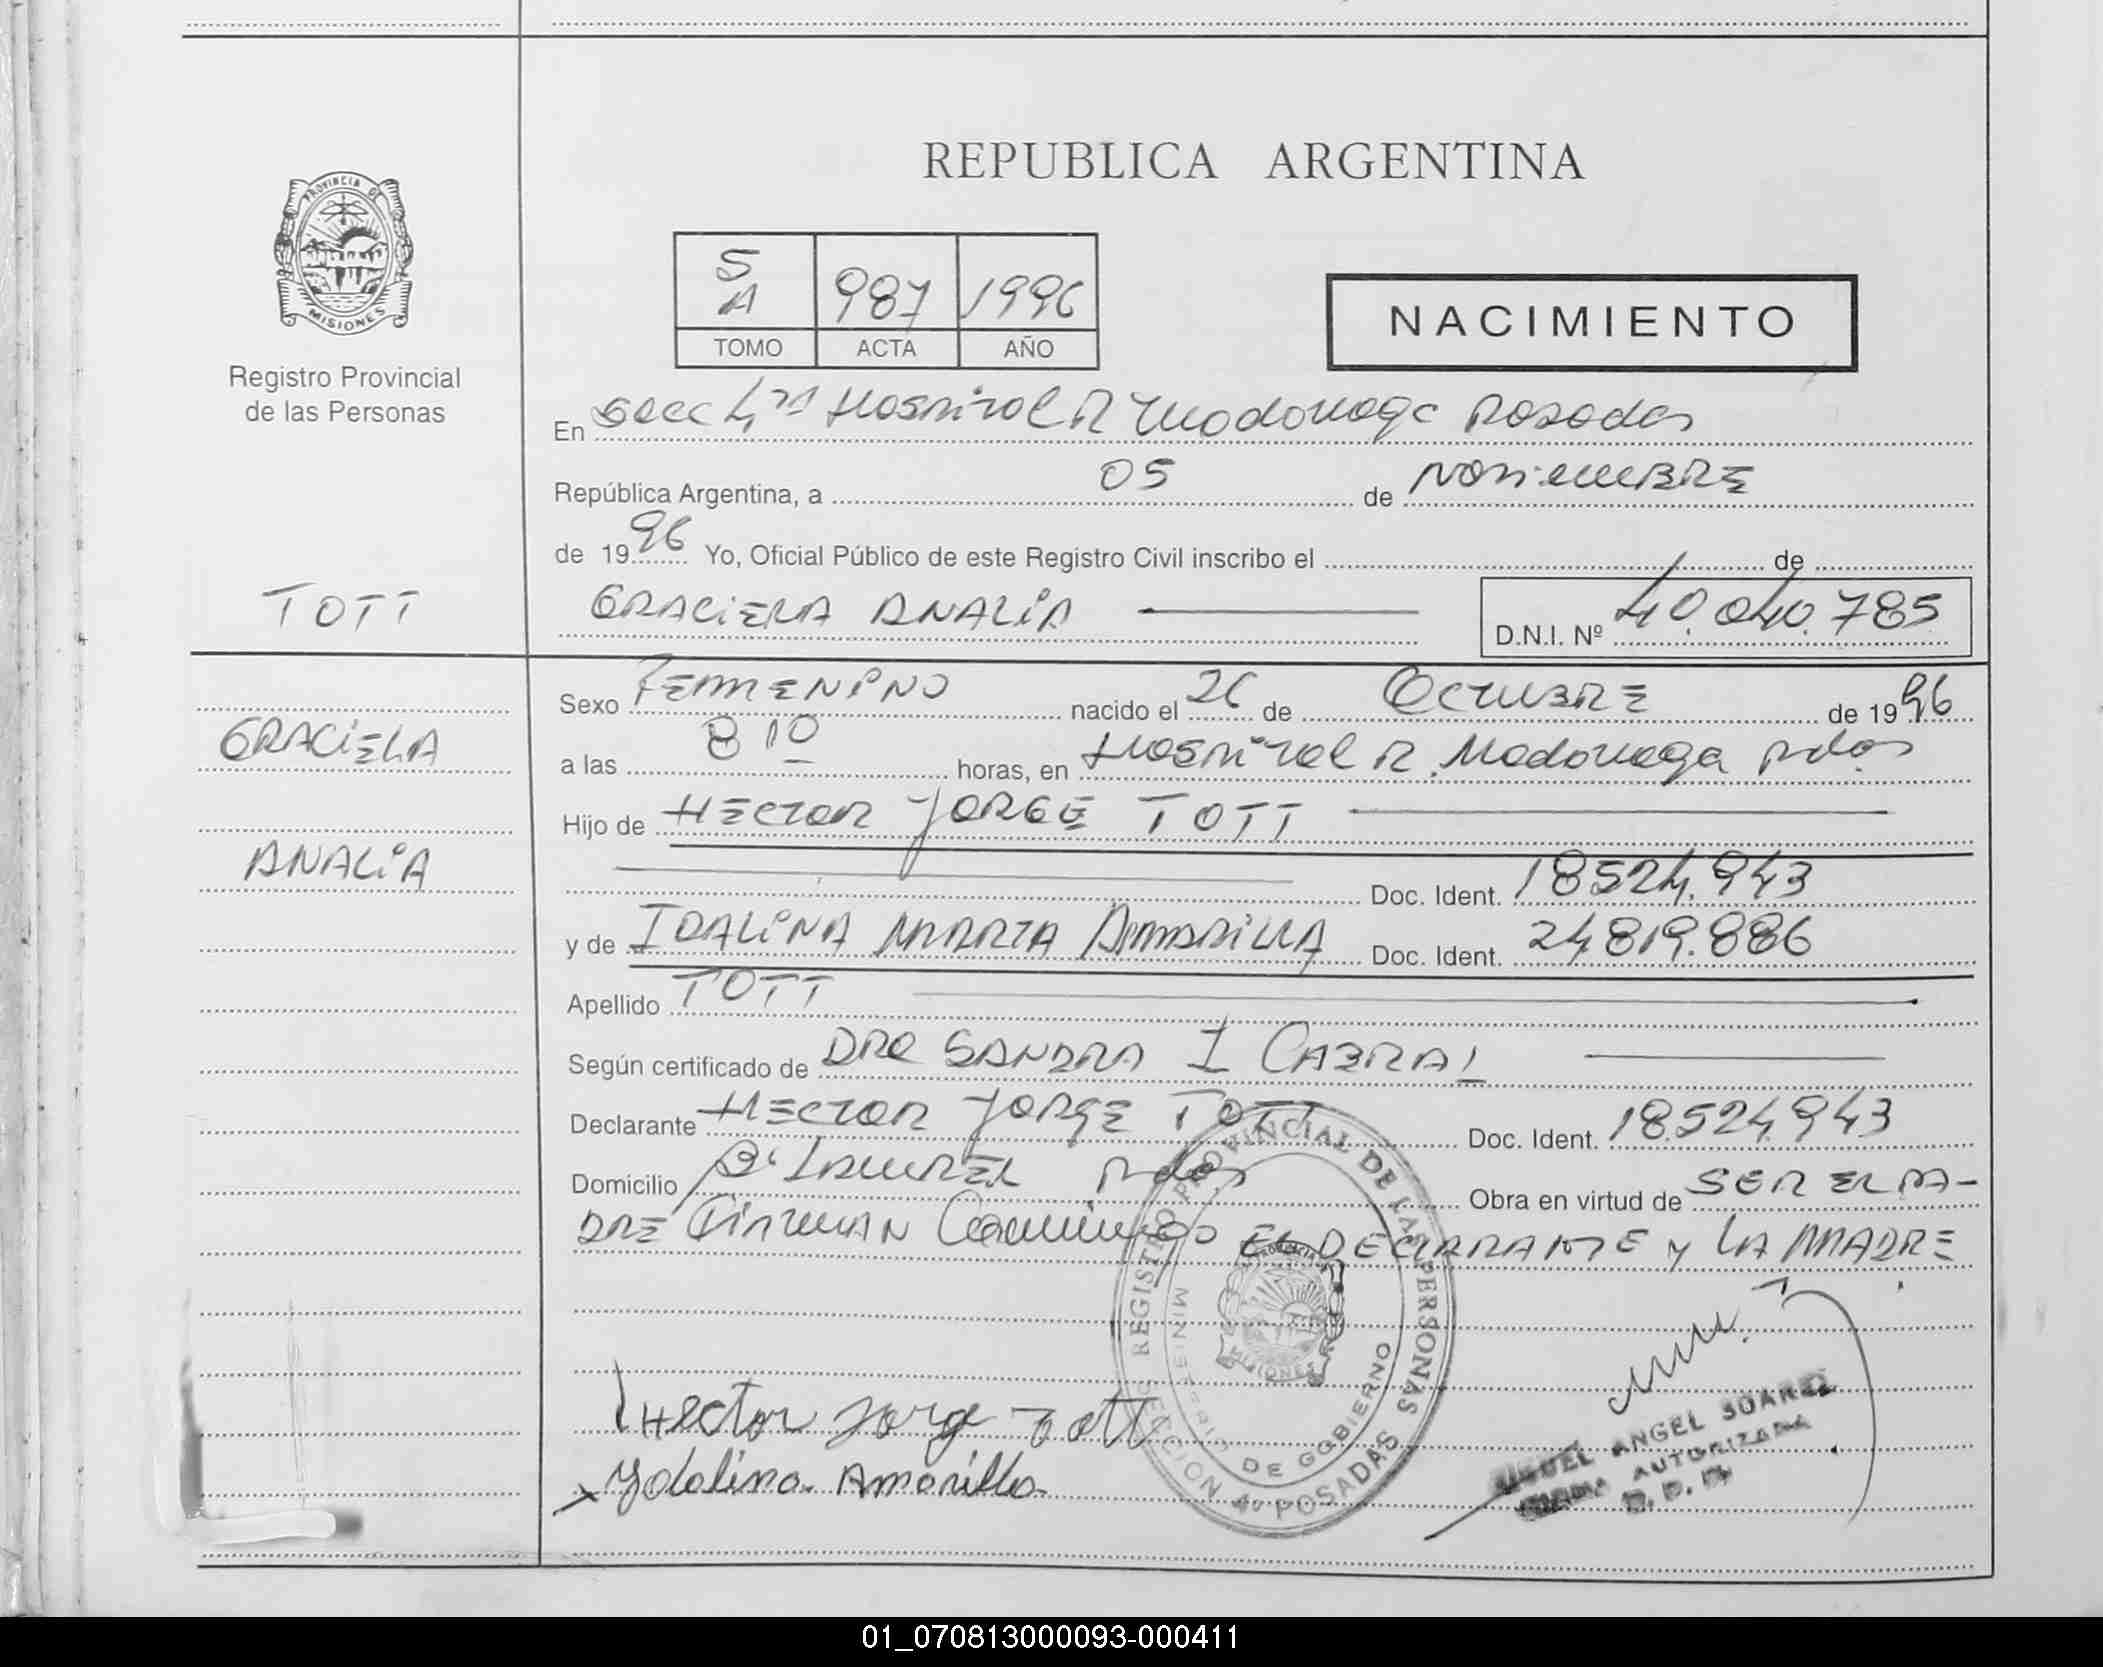 REPUBLICA ARGENTINA
PROVINCIA DE
MISIONES
Registro Provincial
de las Personas
5 A 987 1996
TOMO ACTA AÑO
NACIMIENTO
En Secc 4ta Hospital R Madariaga Posadas
República Argentina, a 05 de Noviembre
de 1996 Yo, Oficial Público de este Registro Civil inscribo el de
TOTT
GRACIELA ANALIA
D.N.I. Nº 40.040.785
GRACIELA
ANALIA
Sexo FEMENINO nacido el 26 de OCTUBRE de 1996
a las 8 10 horas, en Hospital R. Madariaga Pdas
Hijo de HECTOR JORGE TOTT
Doc. Ident. 18524.943
y de IDALINA MARTA AMARILLA Doc. Ident. 24819.886
Apellido TOTT
Según certificado de DRA SANDRA I CABRAL
Declarante HECTOR JORGE TOTT Doc. Ident. 18524943
Domicilio Bº LAUREL Pdas Obra en virtud de SER EL PA-
DRE FIRMAN Conmigo EL DECLARANTE y LA MADRE
Hector Jorge Tott
Ydolina Amarilla
REGISTRO PROVINCIAL DE LAS PERSONAS
MINISTERIO DE GOBIERNO
PROVINCIA
MISIONES
SECCION 4º POSADAS
MIGUEL ANGEL SUAREZ
FIRMA AUTORIZADA
01_070813000093-000411